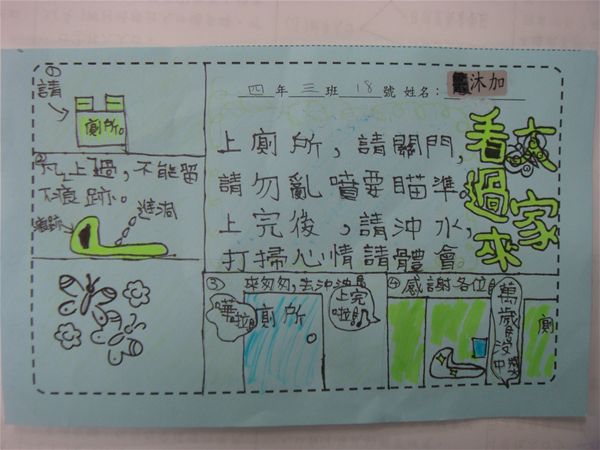 四年三班18號 姓名：沐加
大家
看過來
上廁所，請關門，
請勿亂噴要瞄準。
上完後，請沖水，
打掃心情請體會。
①
請
廁所。
②凡上過，不能留
下痕跡。
痕跡
進洞
③來匆匆，去沖沖
嘩啦
廁所
上完啦
④感謝各位
萬歲沒中獎
廁